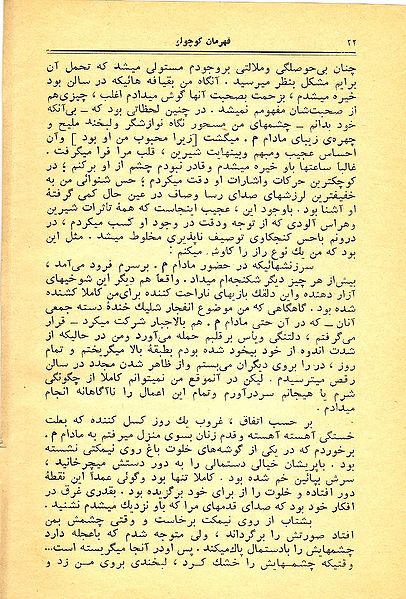 ۲۲ قهرمان کوچولو
چنان بی‌حوصلگی وملالتی بروجودم مستولی میشد که تحمل آن
برایم مشکل بنظر میرسید . آنگاه من بقیافه هائیکه در سالن بود
خیره میشدم ، بزحمت بصحبت آنها گوش میدادم اغلب ، چیزی‌هم
از صحبت‌شان مفهومم نمیشد . در چنین لحظاتی بود که ـ بی‌آنکه
خود بدانم ـ چشمهای من مسحور نگاه نوازشگر ولبخند ملیح و
چهره‌ی زیبای مادام م . میگشت [زیرا محبوب من او بود ] وآن
احساس عجیب ومبهم وبینهایت شیرین ، قلب مرا فرا میگرفت .
غالبا ساعتها باو خیره میشدم وقادر نبودم چشم از او برکنم ؛ در
کوچکترین حرکات واشارات او دقت میکردم ؛ حس شنوائی من به
خفیفترین لرزشهای صدای رسا وصاف در عین حال کمی گرفتهٔ
او آشنا بود . باوجود این ، عجیب اینجاست که همهٔ تأثرات شیرین
وهراس آلودی که از توجه ودقت در وجود او کسب میکردم ، در
درونم باحس کنجکاوی توصیف ناپذیری مخلوط میشد . مثل این
بود که من یک نوع راز را کاوش میکنم :
سرزنشهائیکه در حضور مادام م . برسرم فرود می‌آمد ،
بیش‌از هر چیز دیگر شکنجه‌ام میداد . واقعاً هم دیگر این شوخیهای
آزار دهنده واین دلقک بازیهای ناراحت کننده برای‌من کاملا کشنده
شده بود . گاهگاهی که من موضوع انفجار شلیک خندهٔ دسته جمعی
آنان ـ که در آن حتی مادام م . هم بالاجبار شرکت میکرد ـ قرار
می‌گرفتم ، دلتنگی ویأس برقلبم حمله می‌آورد ومن در حالیکه از
شدت اندوه از خود بیخود شده بودم بطبقهٔ بالا میگریختم و تمام
روز ، در‌را بروی دیگران می‌بستم و‌از ظاهر شدن مجدد در سالن
رقص میترسیدم . لیکن در آنموقع من نمیتوانم کاملا از چگونگی
شرم یا هیجانم سردرآورم وتمام این اعمال را ناآگاهانه انجام
میدادم .
بر حسب اتفاق ، غروب یک روز کسل کننده که بعلت
خستگی آهسته آهسته و‌قدم زنان بسوی منزل میرفتم به مادام م .
برخوردم که در یکی از گوشه‌های خلوت باغ روی نیمکتی نشسته
بود . باپریشان خیالی دستمالی را به دور دستش میچرخانید ،
سرش بپائین خم شده بود . کاملا تنها بود وگوئی عمداً این نقطهٔ
دور افتاده و خلوت را از برای خود برگزیده بود . بقدری غرق در
افکار خود بود که صدای قدمهای مرا که باو نزدیک میشدم نشنید .
بشتاب از روی نیمکت برخاست و وقتی چشمش بمن
افتاد صورتش را برگرداند ، ولی متوجه شدم که باعجله دارد
چشمهایش را بادستمال پاک‌میکند . پس اودر آنجا میگریسته است...
وقتیکه چشمهایش را خشک کرد ، لبخندی بروی من زد و